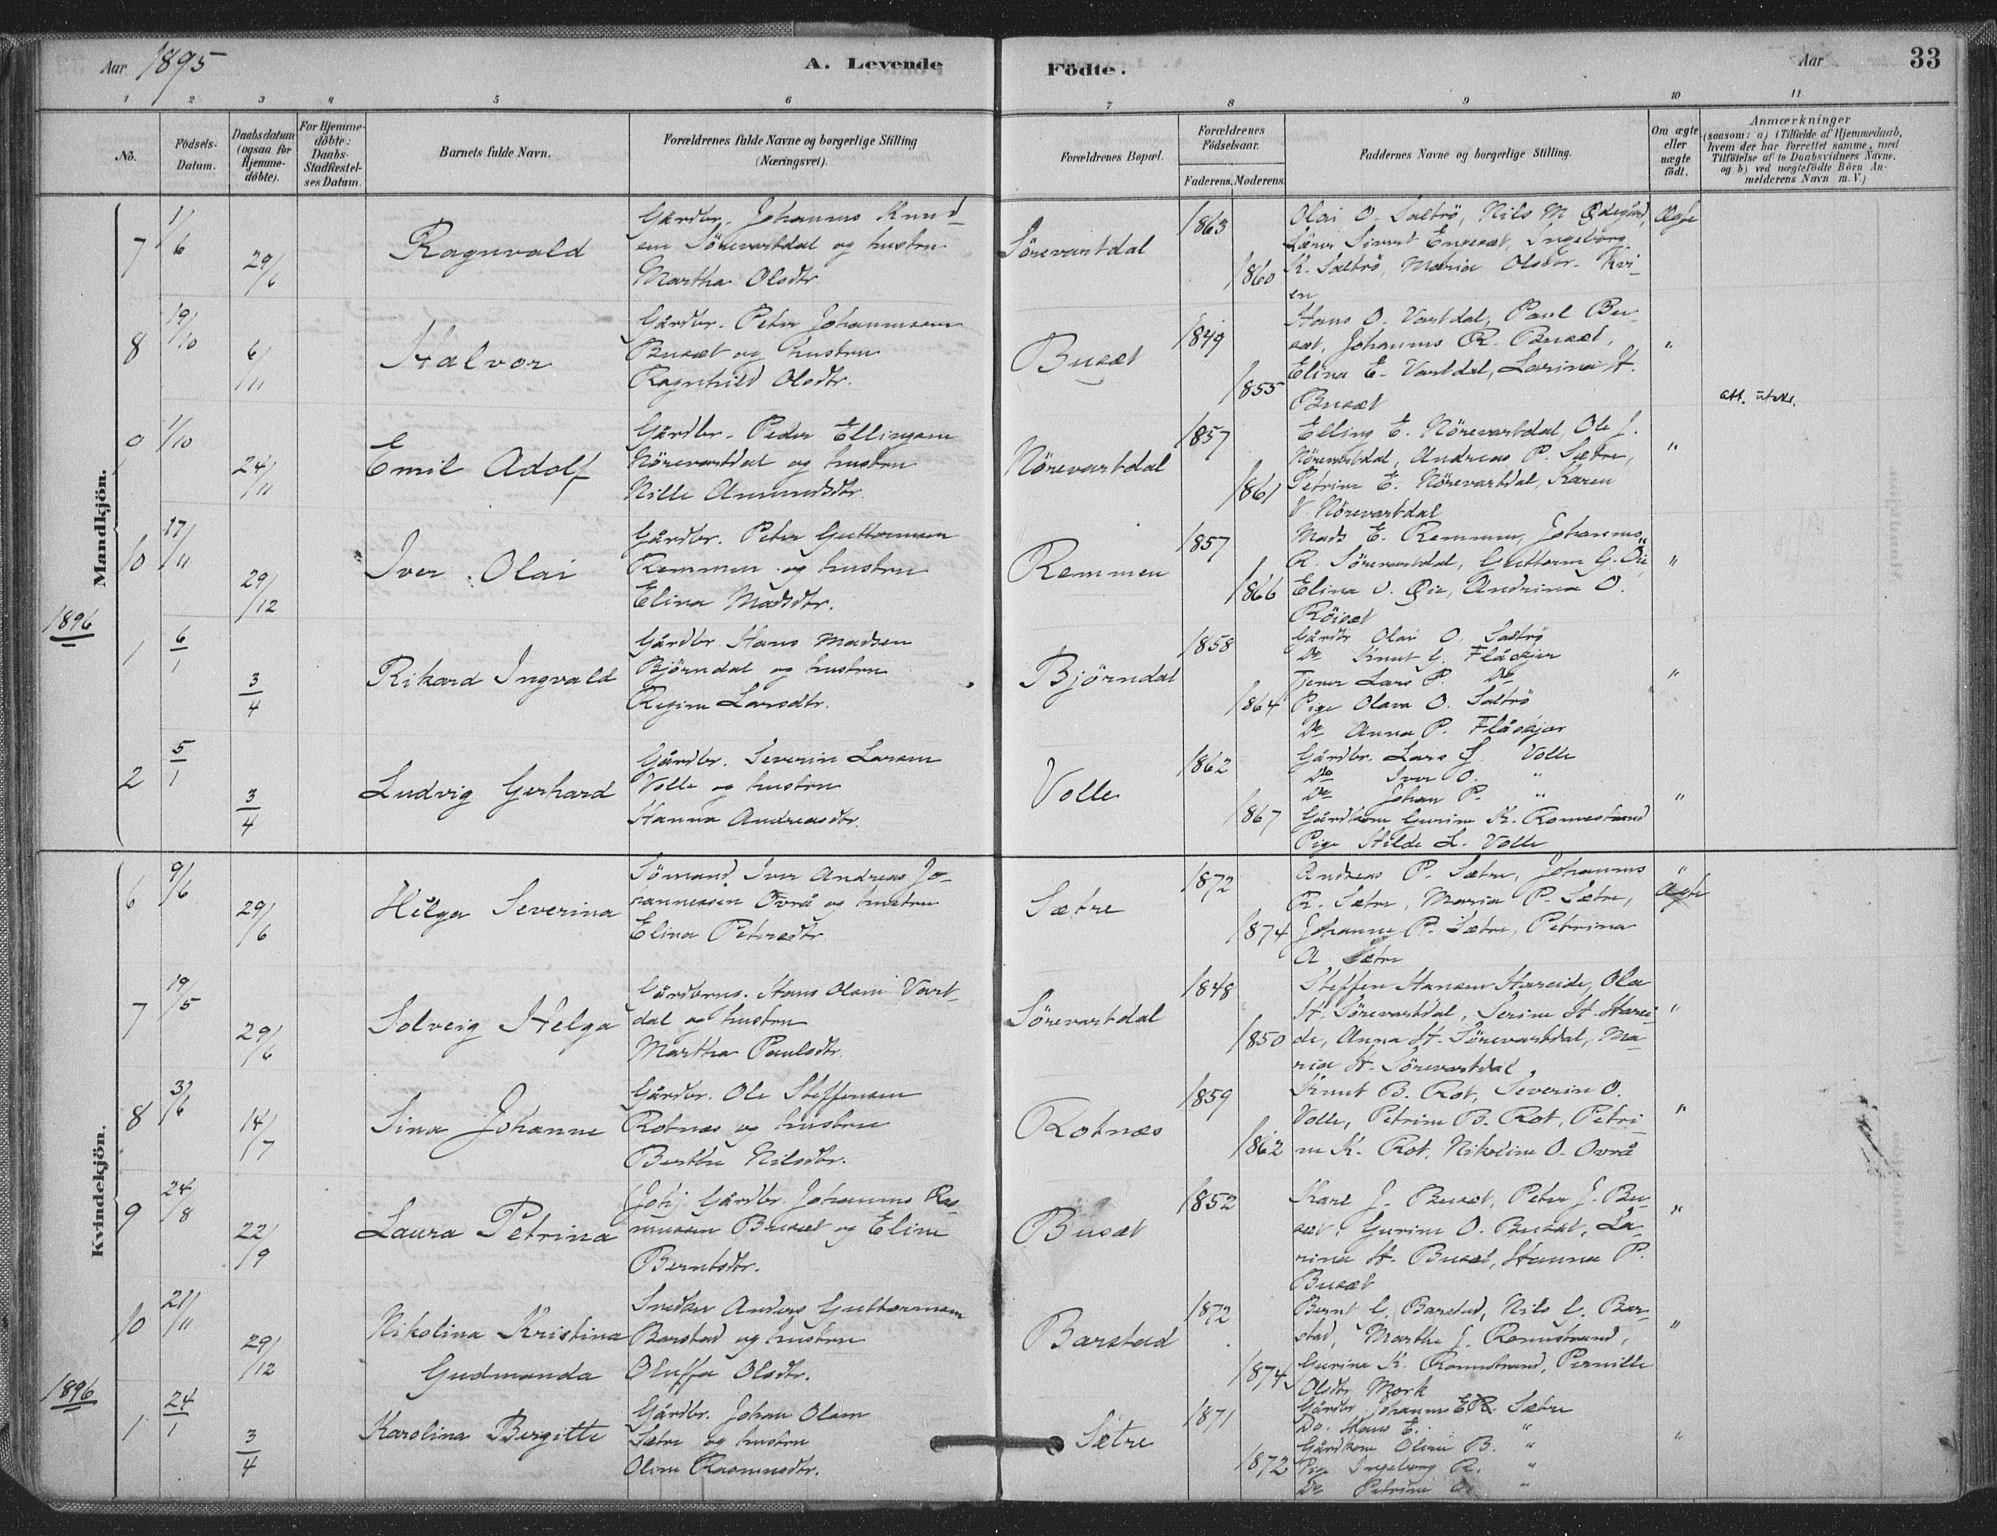 Aar 1895
A. Levende
Födte.
Aar
33
1 2 3 4 5 6 7 8 9 10 11
No.
Födsels-
Datum.
Daabsdatum
(ogsaa for
Hjemme-
døbte).
For Hjemme-
døbte:
Daabs-
Stadfæstel-
ses Datum.
Barnets fulde Navn.
Forældrenes fulde Navne og borgerlige Stilling
(Næringsvei).
Forældrenes Bopæl.
Forældrenes
Födselsaar.
Faderens. Moderens.
Faddernes Navne og borgerlige Stilling.
Om ægte
eller
uægte
födt.
Anmærkninger
(saasom: a) i Tilfælde af Hjemmedaab,
hvem der har forrettet samme, med
Tilföielse af to Daabsvidners Navne,
og b) ved uægtefödte Börn An-
melderens Navn m. V.)
Mandkjön.
7 1/6 29/6
Ragnvald
Gårdbr. Johannes Knud-
sen Sörevartdal og hustru
Martha Olsdtr.
Sörevartdal
1863
1860
Olai O. Saltrö, Nils M.
Sivert Ingeborg
K. Saltrö, Maria Olsdtr. Kvi-
en
Ægte
8 19/10 6/11
Halvor
Gårdbr. Peter Johannessen
Busæt og hustru
Ragnhild Olsdtr.
Busæt
1849
1855
Hans O. Vartdal, Paul Bu-
sæt, Johannes R. Busæt,
Elina E. Vartdal, Larina H.
Busæt
"
att. utst.
9 1/10 24/11
Emil Adolf
Gårdbr. Peder Ellingsen
Nörevartdal og hustru
Nille Amundsdtr.
Nörevartdal
1857
1861
Elling E. Nörevartdal, Ole J.
Nörevartdal, Andreas P. Sætre,
Petrine E. Nörevartdal, Karen
V. Nörevartdal
"
10 17/11 29/12
Iver Olai
Gårdbr. Peter Guttormsen
Remmen og hustru
Elina Madsdtr.
Remmen
1857
1866
Mads E. Remmen, Johannes
R. Sörevartdal, Guttorm G. Öie,
Elina O. Øie, Andrina O.
Röiset
"
1896
1 6/1 3/4
Rikard Ingvald
Gårdbr Hans Madsen
Björndal og hustru
Regine Larsdtr.
Bjørndal
1858
1864
Gårdbr Olai O. Saltrö
Do Knut Flåskjer
Tjener Lars P. Do
Pige Olava O. Saltrö
Do Anna P. Flåskjer
"
2 5/1 3/4
Ludvig Gerhard
Gårdbr. Severin Larsen
Volle og hustru
Hanna Andreasdtr.
Volle
1862
1867
Gårdbr. Lars S. Volle
Do Iver O. "
Do Johan P. "
Gårdkone Gurine K. Romestrand
Pige Hilde L. Volle
"
Kvindekjön.
6 9/6 29/6
Helga Severina
Sömand Iver Andreas Jo-
hannessen Ovrå og hustru
Elina Petersdtr.
Sætre
1872
1874
Andreas P. Sætre, Johannes
R. Sætre, Maria P. Sætre,
Johanne P. Sætre, Petrina
A. Sætre
"
Ægte
7 19/5 29/6
Solveig Helga
Gårdbrug. Hans Olsen Vart-
dal og hustru
Martha Paulsdtr.
Sörevartdal
1848
1850
Steffen Hansen Hareide, Ola
H. Sörevartdal, Serine H. Harei-
de, Anna H. Sörevartdal, Ma-
rie H. Sörevartdal
"
8 3/6 14/7
Sina Johanne
Gårdbr. Ole Steffensen
Rotnæs og hustru
Berthe Nilsdtr.
Rotnæs
1859
1862
Knut B. Rot, Severin O.
Volle, Petrine B. Rot, Petri-
ne K. Rot, Nikoline O. Ovrå
"
9 24/8 22/9
Laura Petrina
Gårdbr. Johannes Ras-
mussen Busæt og Eline
Berntsdtr.
Busæt
1852
Karl J. Busæt, Peter J. Bu-
sæt, Gurine O. Busæt, La-
rina H. Busæt, Hanna P.
Busæt
"
10 21/11 29/12
Nikolina Kristina
Gudmunda
Snedker Anders Guttormsen
Barstad og hustru
Oluffa Olsdtr.
Barstad
1872
1874
Bernt G. Barstad, Nils G. Bar-
stad, Marthe J. Romestrand,
Gurina K. Romestrand, Pernille
Olsdtr Mork
"
1896
1 24/1 3/4
Karolina Bergitte
Gårdbr. Johan Olsen
Sætre og hustru
Oline Rasmusdtr.
Sætre
1871
1872
Gårdbr Johannes R. Sætre
Do. Hans E. "
Gårdkone Oline B. "
Pige Ingeborg R. "
Do Petrine O. "
"